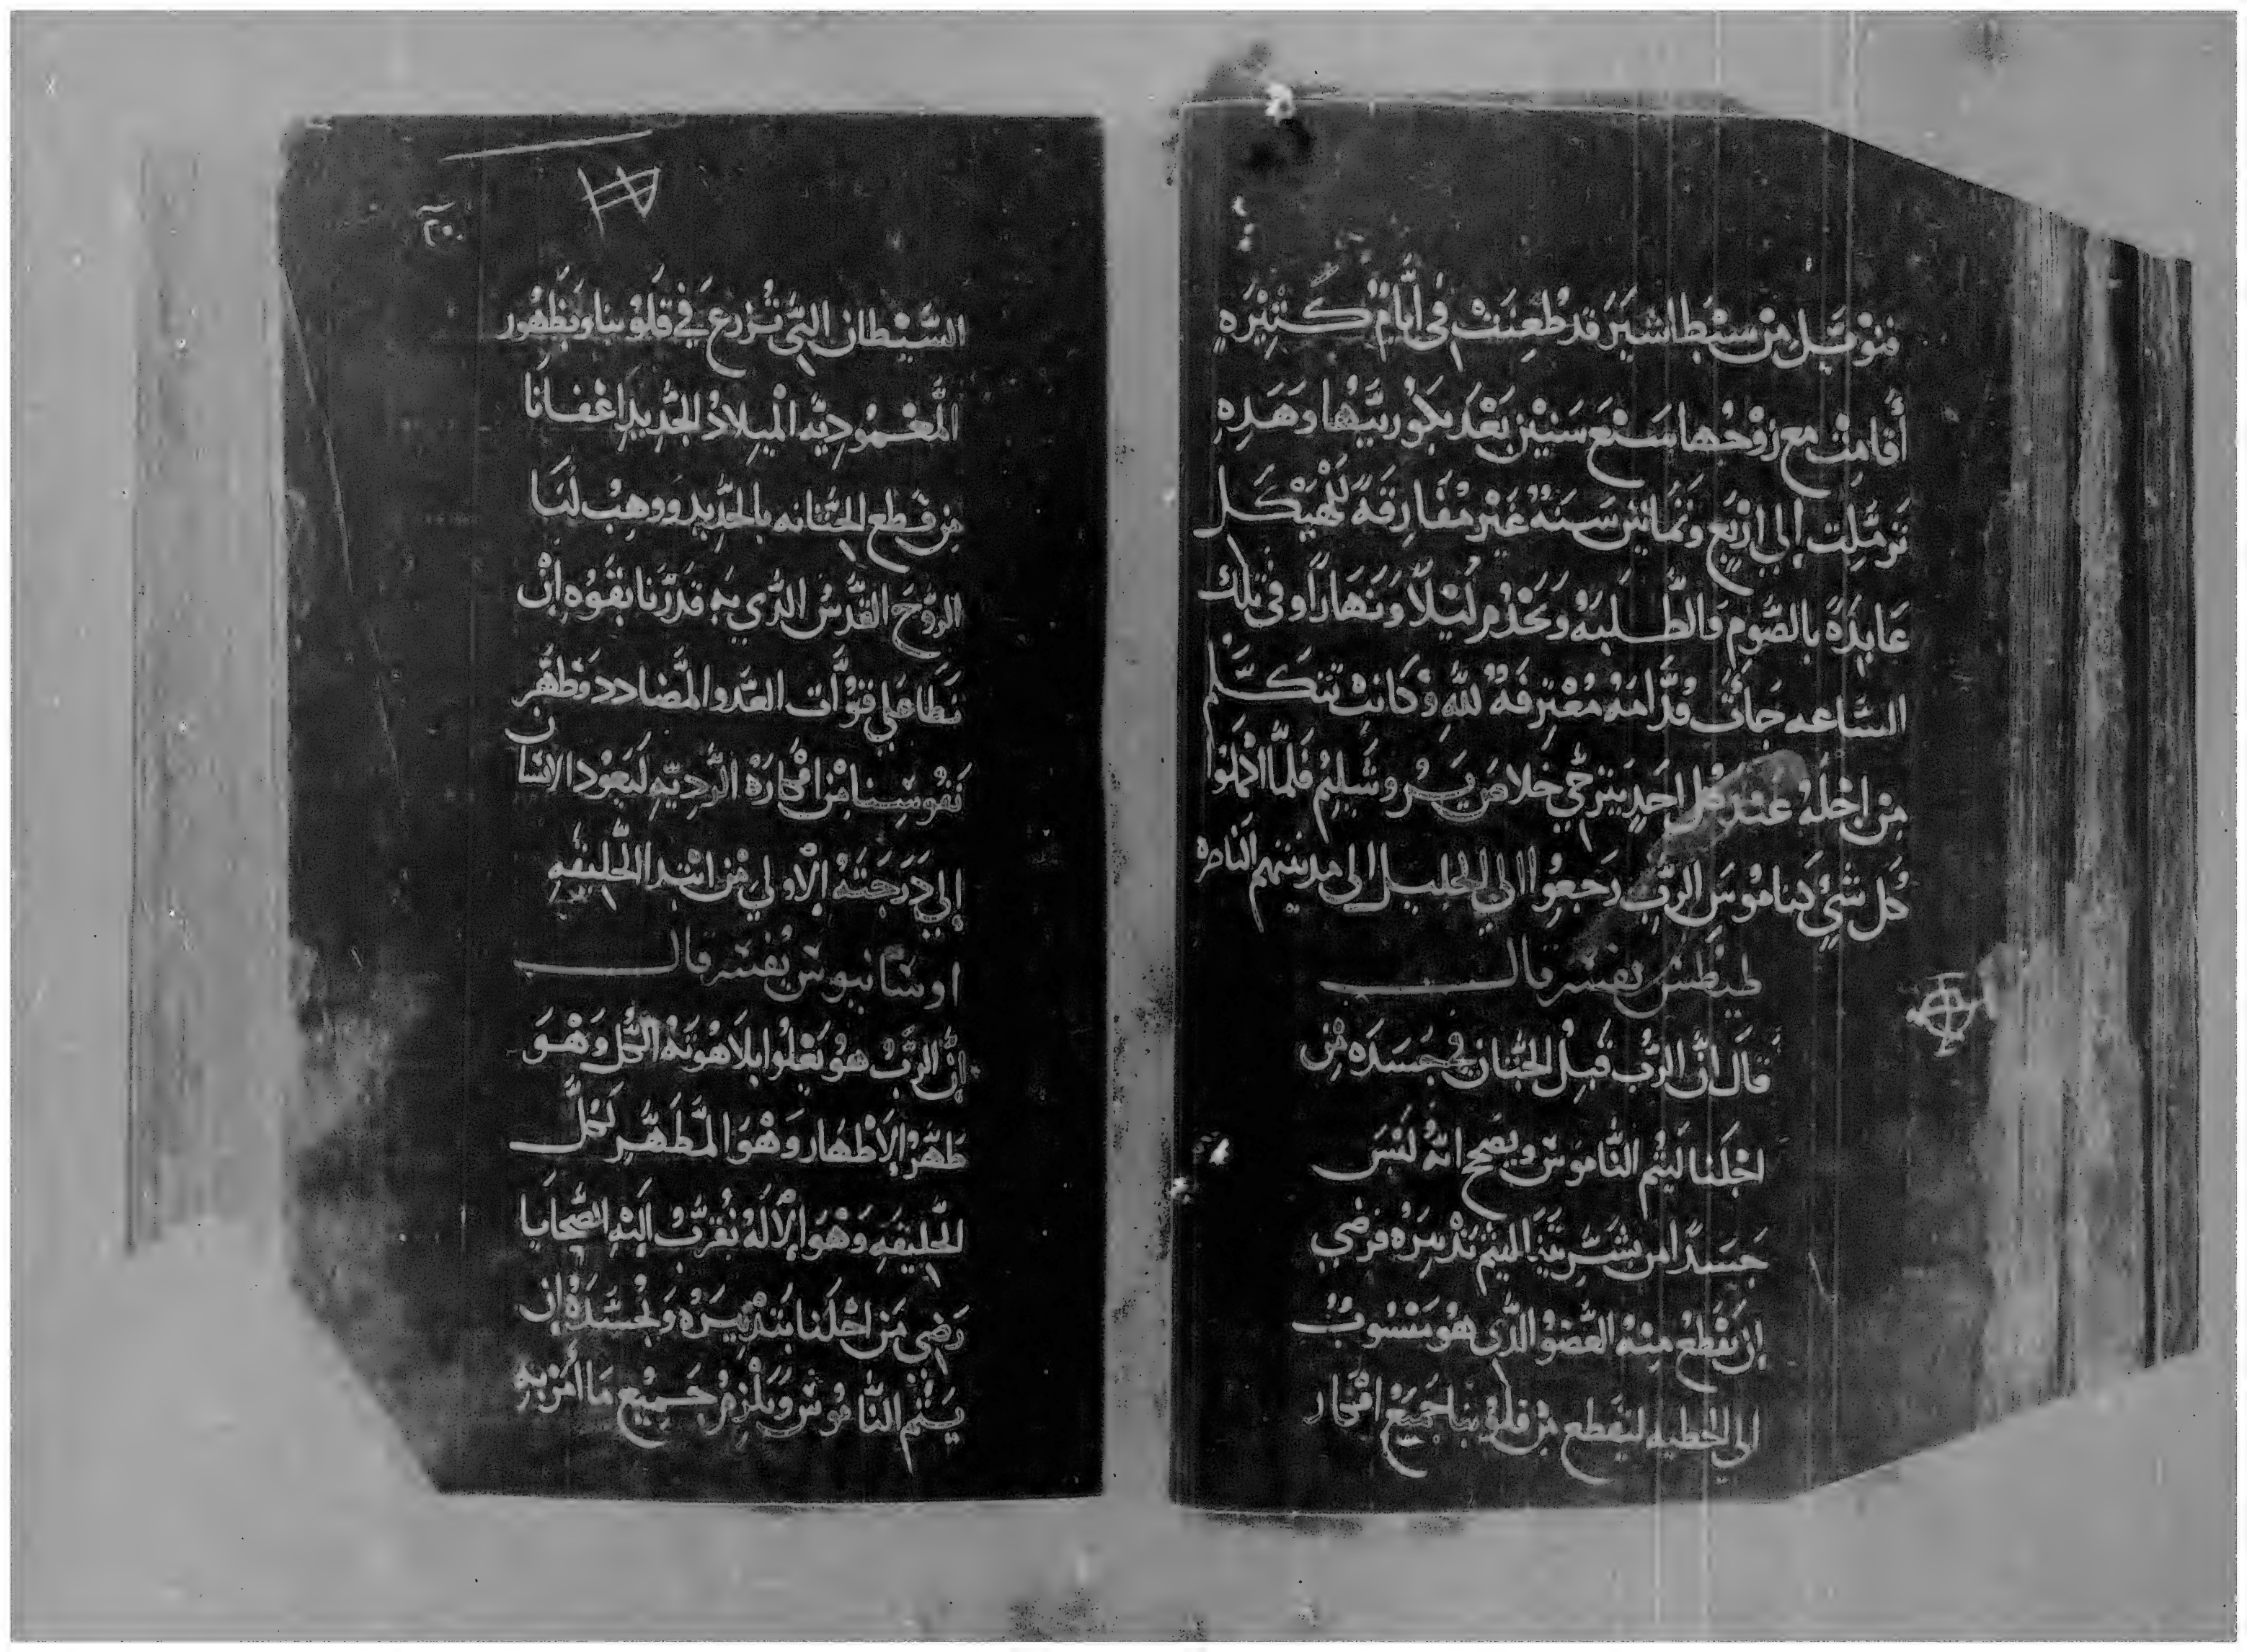 فنوئيل من سبط اشير قد طعنت في أيام كثيره
أقامت مع زوجها سبع سنين بعد بكوريتها وهذه
ترملت إلي اربع وثمانين سنة غير مفارقة للهيكل
عابدة بالصوم والطلبه وتخدم ليلا ونهارا وفي تلك
الساعه جات قدامه معترفة لله وكانت تتكلم
من اجله عند كل احد يترجي خلاص يروشليم فلما اكملوا
كل شي كناموس الرب رجعوا الي الجليل الى مدينتهم الناصره
طيطس يفسر قال
قال ان الرب قبل الختان في جسده من
اجلنا ليتم الناموس ويصح انه لبس
جسدا من بشريتنا ليتم تدبيره فرضي
ان يقطع منه العضو الذي هو منسوب
الي الخطيه ليقطع من قلوبنا جميع افكار
٢٠
الشيطان التي تزرع في قلوبنا وبظهور
المعموديه الميلاد الجديد اعفانا
من قطع الختانه بالحديد ووهب لنا
الروح القدس الذي به قدرنا بقوه ان
نطا علي قوات العدو المضادد وطهر
نفوسنا من افكاره الرديه ليعود الانسان
إلي درجته الاولي من ابتدا الخليقه
اوسانيوس يفسر قال
إن الرب هو يعلوا بلاهوته الكل وهو
طهر الاطهار وهو المطهر لكل
الخليقه وهو الاله نقرب اليه الضحايا
رضي من اجلنا بتدبيره وتجسده ان
يتمم الناموس ويلزم جميع ما أمر به